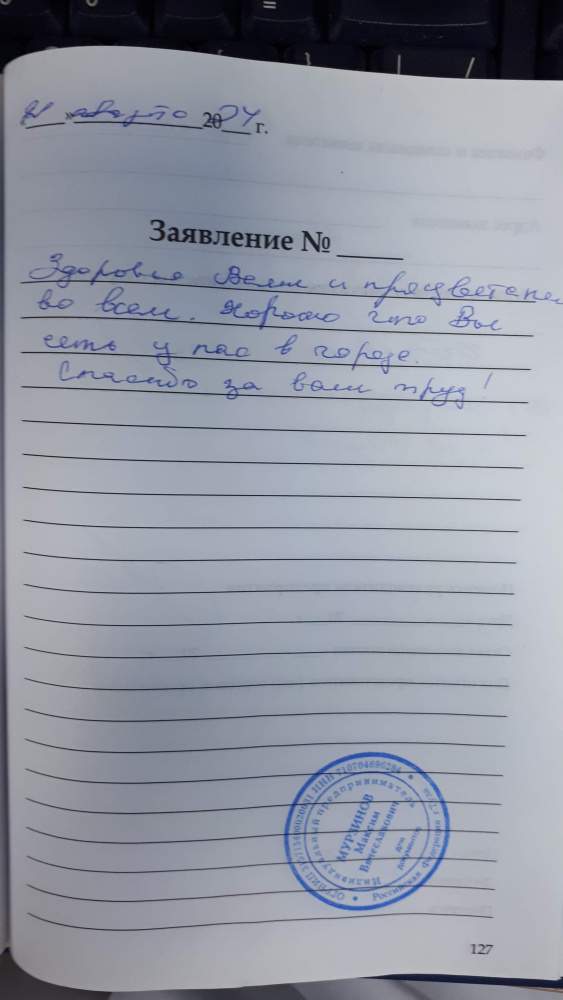 21 » августа 2024 г.
Заявление № ____
Здоровья Вам и процветания
во всем. Хорошо что Вы
есть у нас в городе.
Спасибо за ваш труд!
Индивидуальный предприниматель
МУРЗИНОВ
Максим
Вячеславович
для
документов
Российская Федерация г. Тула
127